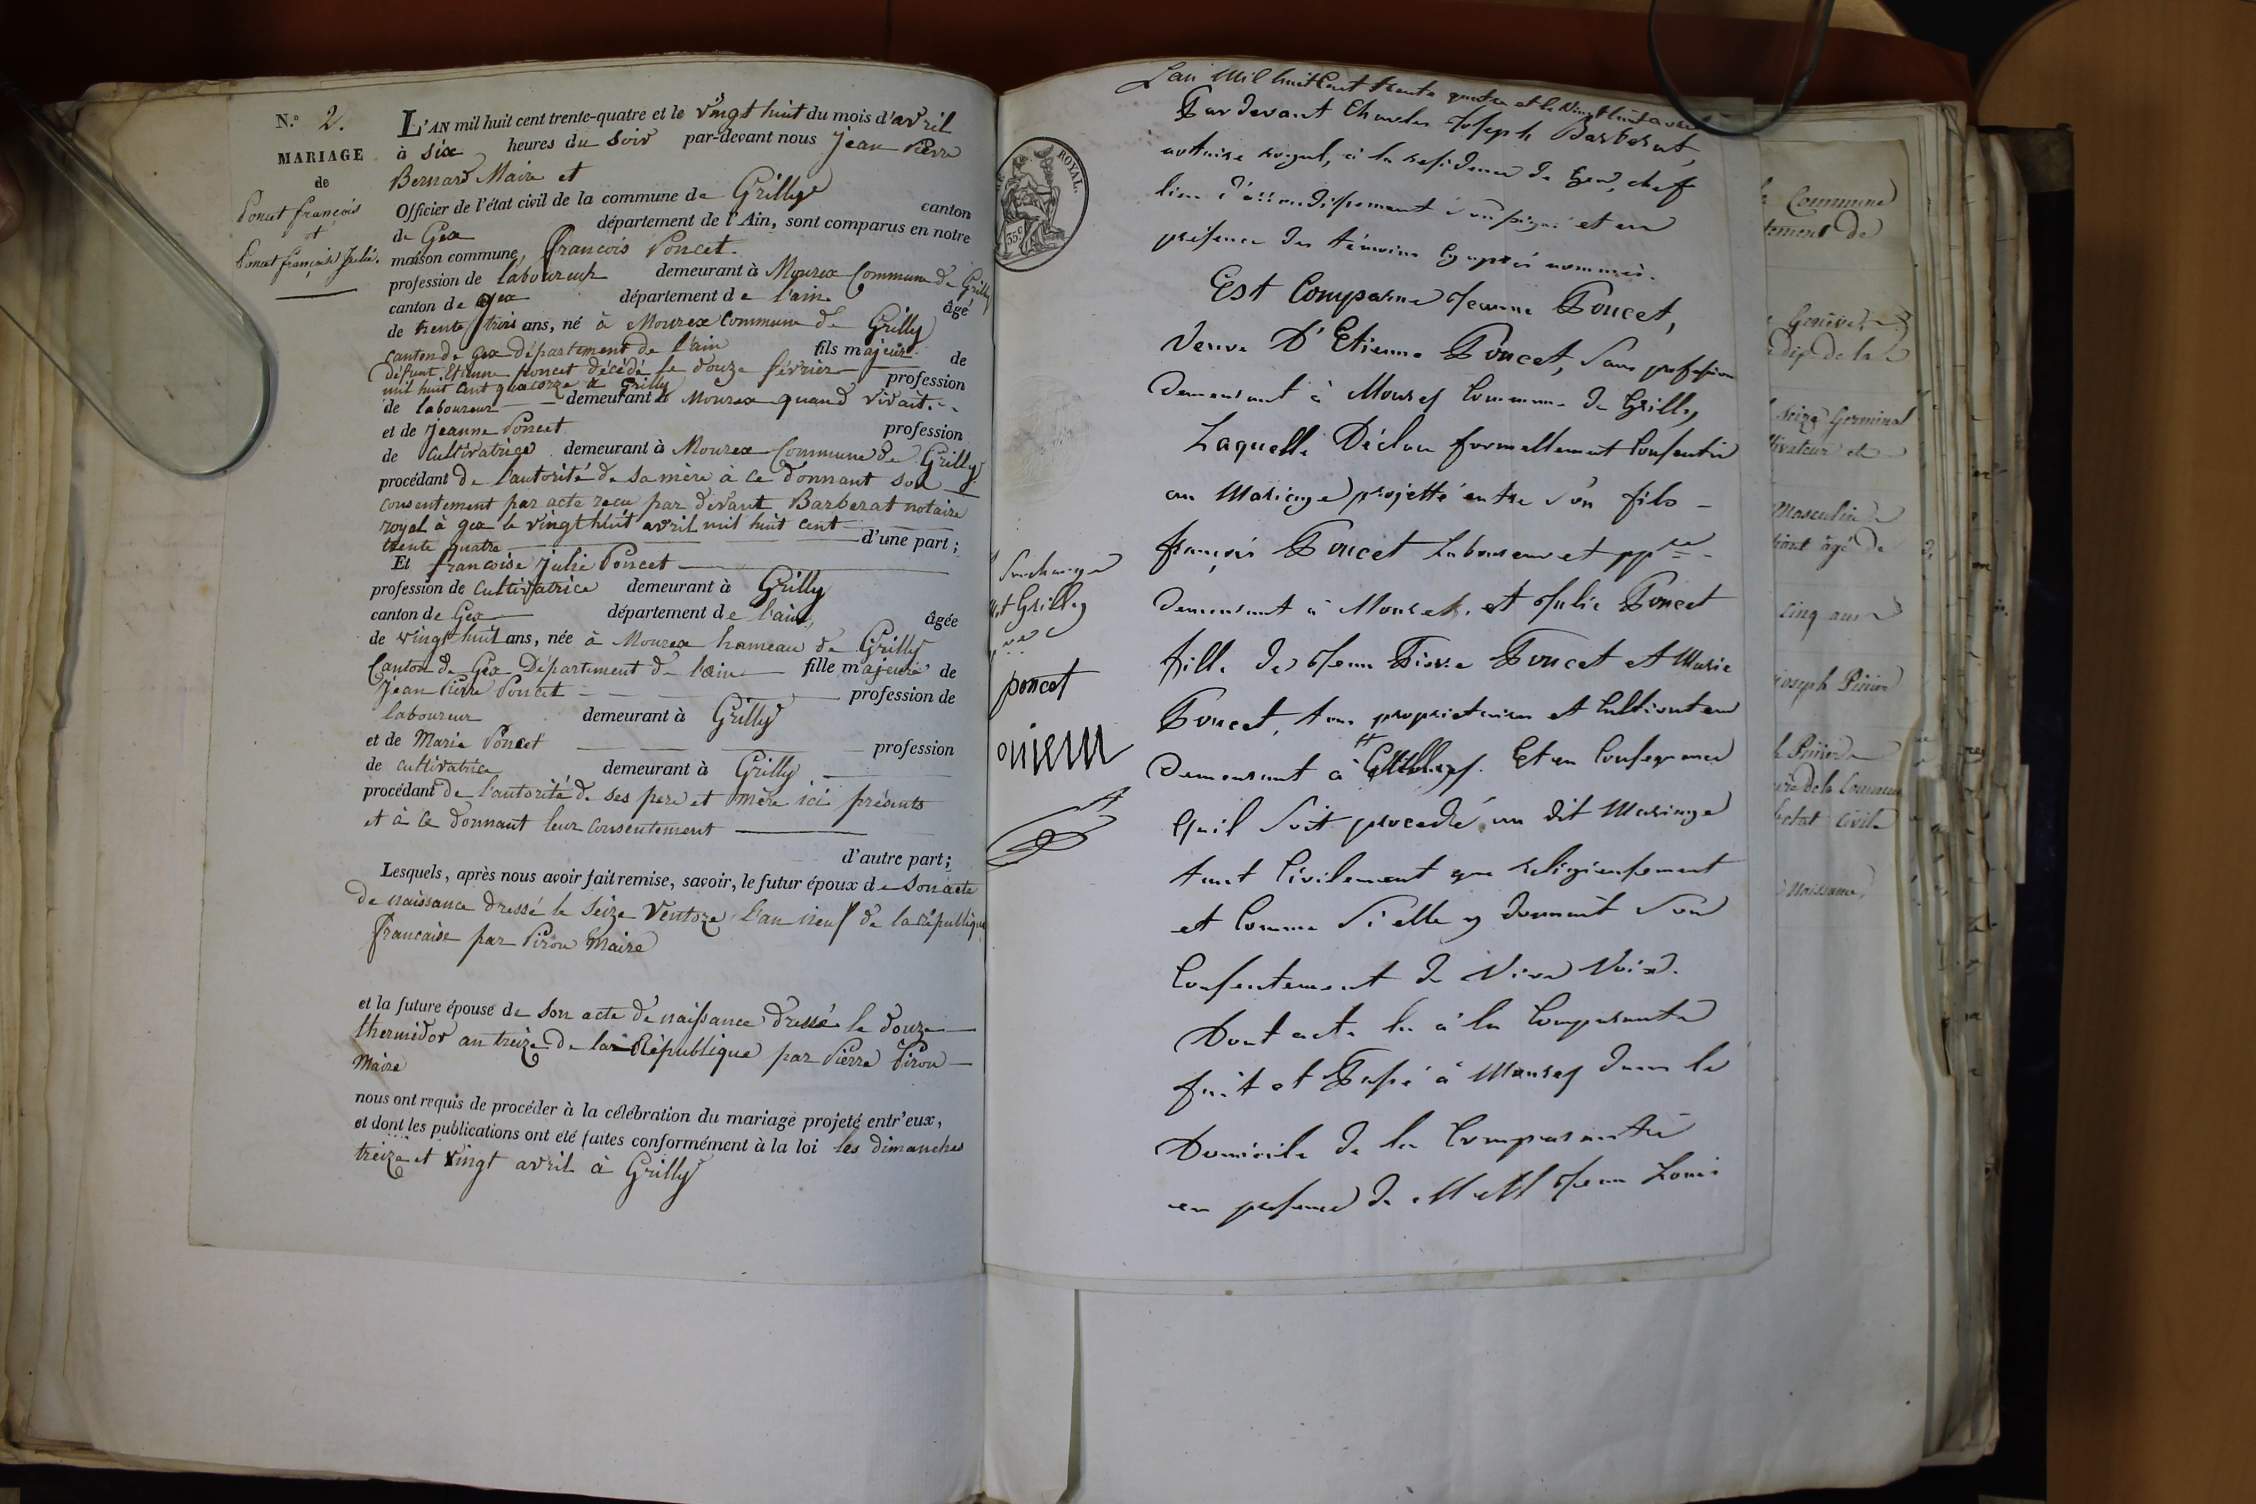 N.º 2.
MARIAGE
de
Poncet françois
et
Poncet françoise Julie.
L'AN mil huit cent trente-quatre et le vingt huit du mois d'avril
à six heures du soir par-devant nous Jean Pierre
Bernard Maire et
Officier de l'état civil de la commune de Grilly canton
de Gex département de l'Ain, sont comparus en notre
maison commune, françois Poncet.
profession de laboureur demeurant à Mourex Commune de Grilly
canton de Gex département de l'ain âgé
de trente trois ans, né à Mourex Commune de Grilly
canton de Gex département de l'ain fils majeur de
défunt Etienne Poncet décédé le douze février
mil huit cent quatorze à Grilly profession
de laboureur demeurant à Mourex quand vivait.
et de Jeanne Poncet profession
de cultivatrice demeurant à Mourex Commune de Grilly
procédant de l'autorité de sa mère à ce donnant son
consentement par acte reçu par devant Barberat notaire
royal à gex le vingt huit avril mil huit cent
trente quatre d'une part ;
Et françoise Julie Poncet
profession de Cultivatrice demeurant à Grilly
canton de Gex département de l'ain, âgée
de vingt huit ans, née à Mourex hameau de Grilly
Canton de Gex Département de l'ain fille majeure de
Jean Pierre Poncet profession de
laboureur demeurant à Grilly
et de Marie Poncet profession
de cultivatrice demeurant à Grilly
procédant de l'autorité de ses pere et mère ici présents
et à ce donnant leur consentement
d'autre part ;
Lesquels, après nous avoir fait remise, savoir, le futur époux de son acte
de naissance dressé le seize Ventoze l'an neuf de la république
francaise par Piron Maire
et la future épouse de son acte de naissance dressé le douze
thermidor an treize de la République par Pierre Piron
Maire
nous ont requis de procéder à la célébration du mariage projeté entr'eux,
et dont les publications ont été faites conformément à la loi les dimanches
treize et vingt avril à Grilly
L'an mil huit cent trente quatre et le vingt huit avril
Par devant Charles Joseph Barberat,
notaire royal, à la residence de Gex, chef
lieu d'arrondissement soussigné et en
présence des témoins cy après nommés.
ROYAL.
35 c
Est Comparue Jeanne Poncet,
veuve D'Etienne Poncet, sans profession
demeurant à Mourex Commune de Grilly
Laquelle Déclare formellement Consentir
au Mariage projetté entre son fils
françois Poncet laboureur et pp.re
demeurant à Mourex. et Julie Poncet
fille de Jean Pierre Poncet et Marie
Poncet, tous proprietaires et Cultivateurs
demeurant à Grilly. Et en Consequence
quil soit procedé au dit Mariage
tant Civilement que religieusement
et Comme si elle y donnait son
Consentement de Vive Voix.
Dont acte lu à la Comparante
fait et Passé à Mourex dans le
Domicile de la Comparante
en presence de MM Jean Louis
Surcharge
mot Grilly
poncet
Commune
Genève
dép. de la
seize Germinal
Masculin
âgé de
cinq ans
Joseph Piron
de la Commune
Civile
Naissance,